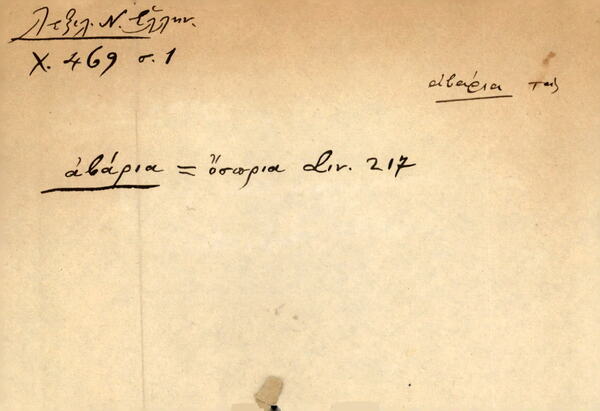 Λεξιλ. Ν. Ἑλλην.
Χ. 469 σ. 1
ἀβάρια τα
ἀβάρια = ὄσωρια Διν. 217